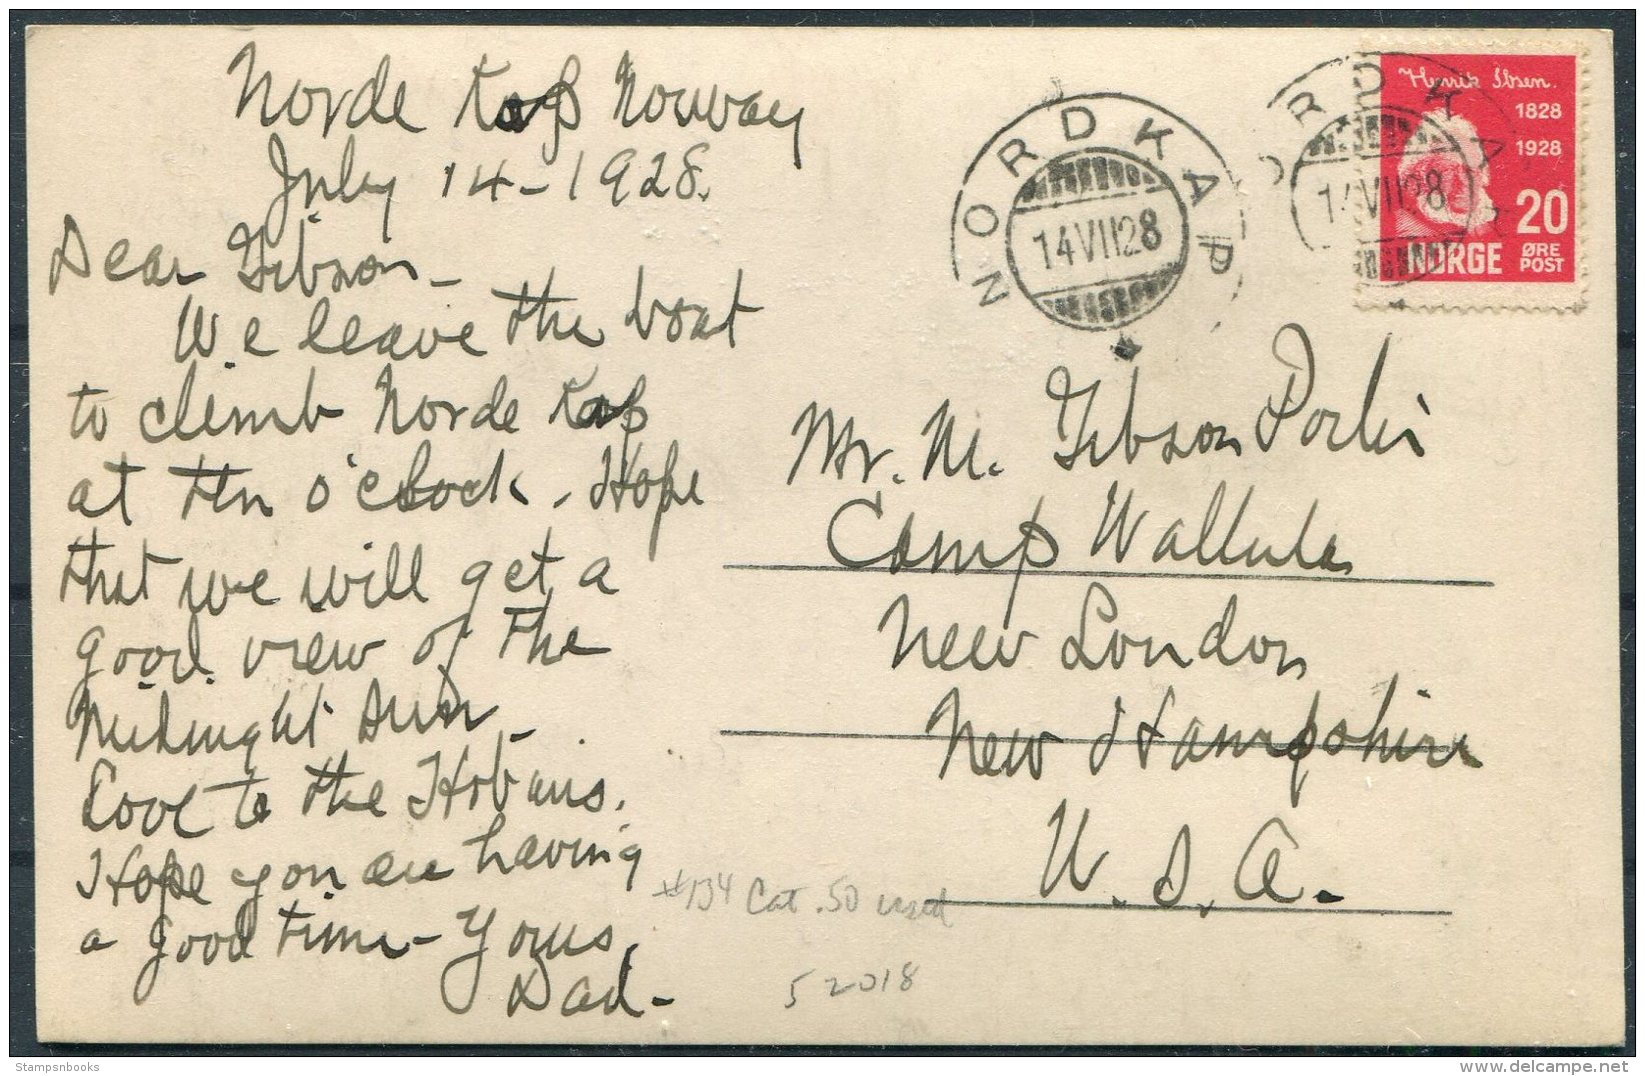 Norde Kap Norway
July 14-1928.
Dear Gibson-
We leave the boat
to climb Norde Kap
at ten o'clock. Hope
that we will get a
good view of the
Midnight Sun-
Love to the Hobans.
Hope you are having
a good time- Yours,
Dad-
NORDKAP
14 VII 28
NORDKAP
14 VII 28
Henrik Ibsen.
1828
1928
20
NORGE
ØRE
POST
Mr. M. Gibson
Camp Wallula
New London
New Hampshire
U.S.A.
#134 Cat .50 used
52018
Stampsnbooks
delcampe.net